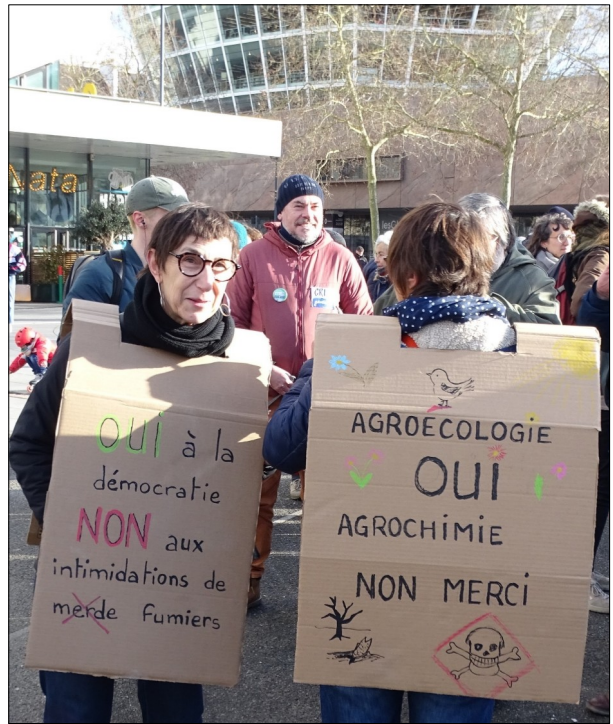 Nata
OUI à la
démocratie
NON aux
intimidations de
merde fumiers
AGROECOLOGIE
OUI
AGROCHIMIE
NON MERCI